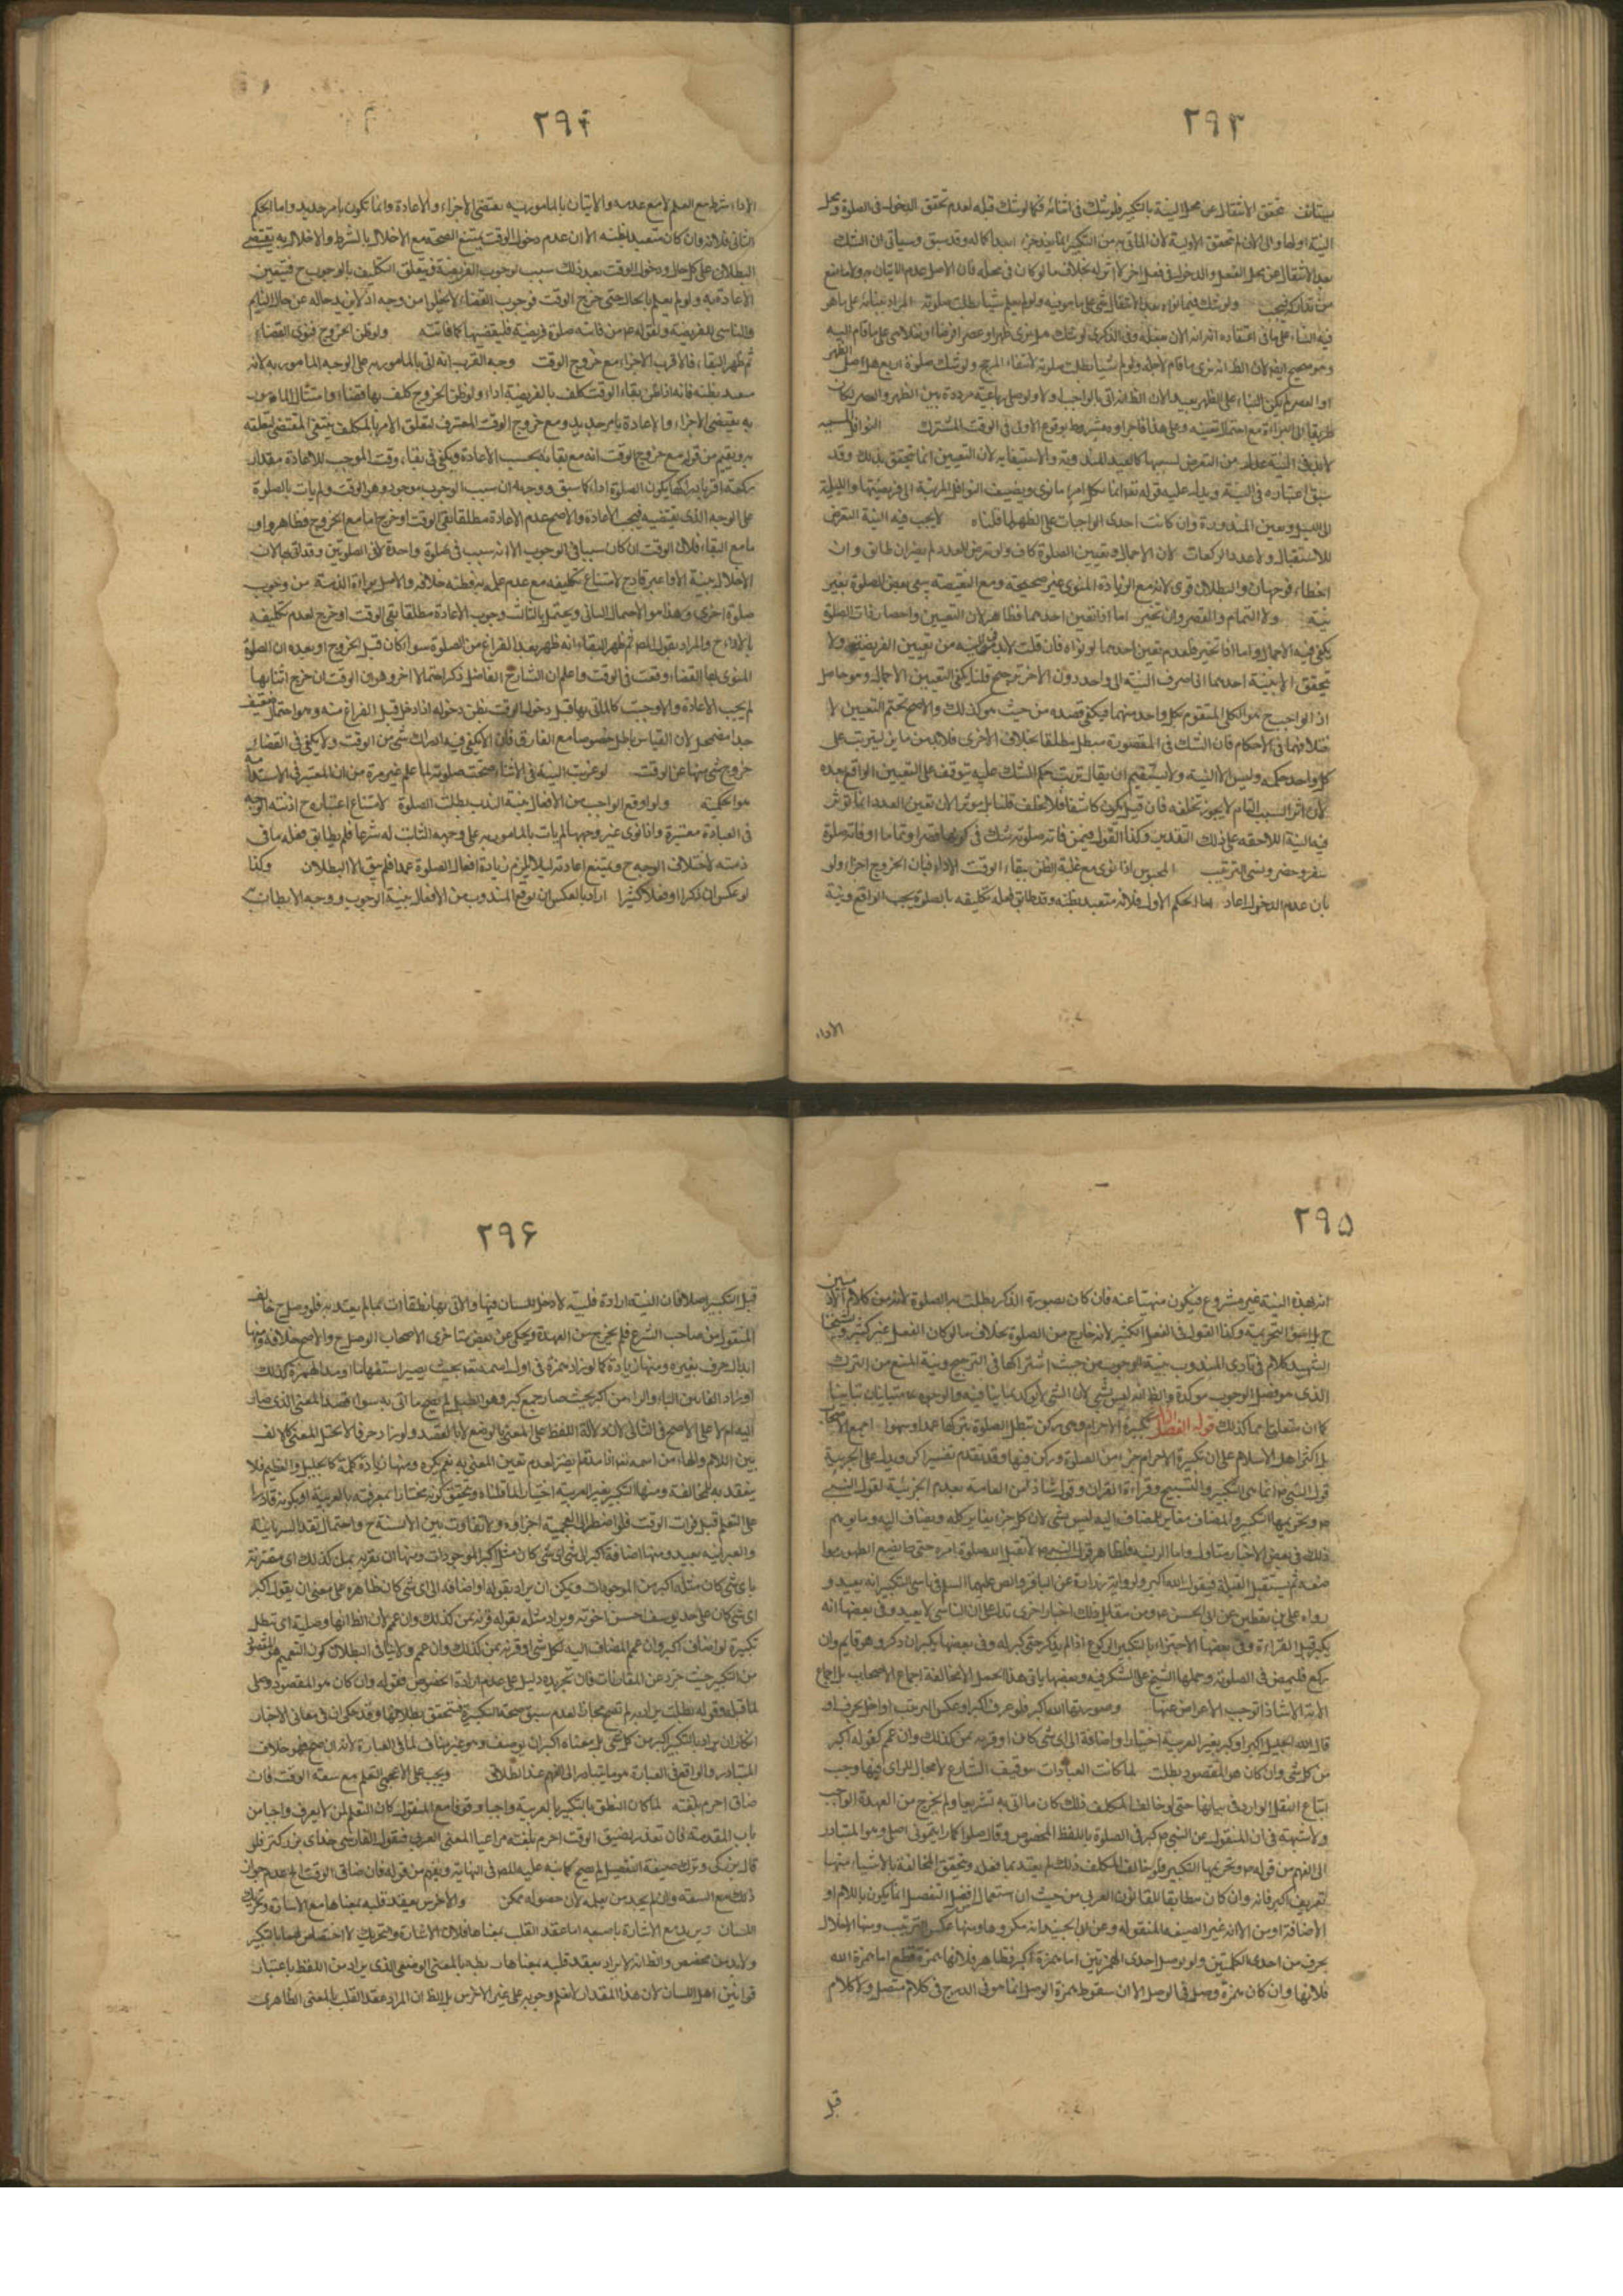 ٢٩٣
يستانف تحقق الانتقال عن محل النية بالتكبير فلو شك في اثنائه فكما لو شك قبله لعدم تحقق الدخول في الصلوة ومحل
النية اولها والى الان لم تحقق الاولية لان الماتى به من التكبير انما يعد جزء
بعد الانتقال عن محل الفعل والدخول في فعل اخر لا اثر له بخلاف ما لو كان في محله فان الاصل عدم الاتيان به ولا مانع
من تداركه فيجب ولو شك فيما نواه بعد الانتقال بنى على ما هو فيه ولو لم يعلم شيئا بطلت صلوته المراد ببنائه على ما هو
فيه البناء على ما في اعتقاده انه الان يفعله وفي الذكرى لو شك هل نوى ظهرا او عصرا او فرضا او نفلا بنى على ما قام اليه
وهو صحيح ايضا لان الظ انه نوى ما قام لاجله ولو لم شيئا بطلت صلوته لانتفاء المرجح ولو شك صلوة اربع هل صلى الظهر
او العصر لم يكن البناء على الظهر بعيدا لان الظ انه اتى بالواجب اولا ولو صلى رباعية مرددة بين الظهر والعصر لكان
طريقا الى البراءة مع احتمال تعينه وعلى هذا فاجزاؤه مشروط بوقوع الاولى في الوقت المشترك النوافل المسببة
لابد في النية من التعرض لسببها كالعيد المندوبة والاستسقاء لان التعيين انما يتحقق بذلك وقد
سبق اعتباره في النية ويدل عليه قوله انما لكل امرئ ما نوى ويضيف النوافل المرتبة الى فريضتها والليلية
الى الليل ويعين المنذورة وان كانت احدى الواجبات على الظهر لما قلناه لا يجب فيه النية التعرض
للاستقبال ولا عدد الركعات لان الاجمال وتعيين الصلوة كاف ولو تعرض للعدد لم يضر ان طابق وان
اخطاء فوجهان والبطلان قوى لانه مع الزيادة المنوى غير صحيحة ومع النقيصة يبقى بعض الصلوة بغير
نية ولا التمام والقصر وان تخير اما اذا تعين احدهما فظاهر لان التعيين واحصار فات الصلوة
يكفى فيه الاجمال واما اذا تخير فلعدم تعين احدهما لو نواه فان قلت لابد في النية من تعيين الفريضة ولا
يتحقق الا بنية احدهما اذ صرف النية الى واحد دون الاخر ترجيح قلنا يكفى التعيين الاجمالي وهو حاصل
اذ الواجب ح هو الكلى المتقوم بكل واحد منهما فيكفى قصده من حيث هو كذلك والاصح تحتم التعيين لا
ختلافهما في الاحكام فان الشك في المقصورة مبطل مطلقا بخلاف الاخرى فلابد من مايز ليترتب على
كل واحد حكمه وليس الا النية ولا يستقيم ان يقال ترتب حكم الشك عليه يتوقف على التعيين الواقع بعده
لان اثر السبب التام لا يجوز تخلفه فان قيل يكون كاشفا فلا تخلف قلنا بل مؤثرا لان تعين العدد انما يؤثر
فيه النية اللاحقة على ذلك التقدير وكذا القول فيمن فاته صلوته شك في كونها قصرا وتماما او فاته صلوة
سفر وحضر ونسى الترتيب المحبوس اذا نوى مع غلبة الظن ببقاء الوقت الاداء فبان الخروج اجزاء ولو
بان عدم الدخول اعاد اما الحكم الاول فلانه متعبد بظنه وقد طابق فعله تكليفه بالصلوة يجب الواقع ونية
الاداء
٢٩٤
الاداء شرط مع العلم لا مع عدمه والاتيان بالمامور به يقتضى الاجزاء والاعادة انما تكون بامر جديد واما الحكم
الثانى فلانه وان كان متعبدا بظنه الا ان عدم دخول الوقت يمتنع الصحة مع الاخلال بالشرط والاخلال به يقتضى
البطلان على كل حال ودخول الوقت بعد ذلك سبب لوجوب الفريضة فيتعلق التكليف بالوجوب ح فيتعين
الاعادة به ولو لم يعلم بالحال حتى خرج الوقت فوجوب القضاء لا يخلوا من وجه اذ لا يزيد حاله عن حال النايم
والناسى للفريضة ولقوله ع من فاتته صلوة فريضة فليقضها كما فاتته ولو ظن الخروج فنوى القضاء
ثم ظهر البقاء فالاقرب الاجزاء مع خروج الوقت وجه القرب انه اتى بالمامور به على الوجه المامور به لانه
متعبد بظنه فانه اذا ظن بقاء الوقت كلف بالفريضة اداء ولو ظن الخروج كلف بها قضاء وامتثال المامور
به يقتضى الاجزاء والاعادة بامر جديد ومع خروج الوقت المعترف لتعلق الامر بالمكلف ينتفى المقتضى لتعلقه
به ويفهم من قوله مع خروج الوقت انه مع بقائه يجب الاعادة ويكفى في بقاء وقت الموجب للاعادة مقدار
ركعة اقر بادراكها يكون الصلوة اداء كما سبق ووجهه ان سبب الوجوب موجود وهو الوقت ولم يات بالصلوة
على الوجه الذى يقتضيه فيجب الاعادة والاصح عدم الاعادة مطلقا بقى الوقت او خرج اما مع الخروج فظاهر واو
ما مع البقاء فلان الوقت ان كان سببا في الوجوب الا انه سبب في صلوة واحدة لا في الصلوتين وقد اتى بها لان
الاخلال بنية الاداء غير قادح لامتناع تكليفه مع عدم علمه به وظنه خلافه والاصل براءة الذمة من وجوب
صلوة اخرى وهذا هو الاحتمال الثانى ويحتمل بالثالث وجوب الاعادة مطلقا بقى الوقت او خرج لعدم تكليفه
بالاداء ح والمراد بقول المص ثم ظهر البقاء انه ظهر بعد الفراغ من الصلوة سواء كان قبل الخروج او بعده ان الصلوة
المنوى بها القضاء وقعت في الوقت واعلم ان الشارح الفاضل ذكر احتمالا اخر وهو ان الوقت ان خرج اثنائها
لم يجب الاعادة والا وجبت كالماتى بها قبل دخول الوقت بظن دخوله اذا دخل قبل الفراغ منه وهو احتمال ضعيف
جدا مضمحل لان القياس باطل خصوصا مع الفارق فان الا يكفى فيه ادراك شئ من الوقت ولا يكفى في القضاء
خروج شئ منها عن الوقت لو عزبت النية في الاثناء صحت صلوته لما علم غير مرة من ان المعتبر في الاستدامة
هو الحكمية ولو اوقع الواجب من الافعال بنية الندب بطلت الصلوة لامتناع اعتباره ح اذ نية الوجه
في العبادة معتبرة واذا نوى غير وجهها لم يات بالمامور به على وجهه الثابت له شرعا فلم يطابق فعله ما في
ذمته لاختلاف الوجه ح ويمتنع اعادته لئلا يلزم زيادة افعال الصلوة عمدا فلم يبق الا البطلان وكذا
لو عكس ان ذكرا او فعلا كثيرا اراد بالعكس ان يوقع المندوب من الافعال بنية الوجوب ووجه الابطال
٢٩٥
انه بهذه النية غير مشروع فيكون منهيا عنه فان كان بصورة الذكر بطلت به الصلوة لانه من كلام الادميين
ح بل يلحق التحريمية وكذا القول في الفعل الكثير لانه خارج من الصلوة بخلاف ما لو كان الفعل غير كثير وشيخنا
الشهيد كلام في تادى المندوب بنية الوجوب من حيث اشتراكها في الترجيح ونية المنع من الترك
الذى هو فصل الوجوب مؤكدة والظ انه ليس بشئ لان الشئ لا يؤكد بما ينافيه والوجوه متباينان تباينا
كما ان متعلق احدهما كذلك قوله الفصل الثالث تكبيرة الاحرام وهى ركن تبطل الصلوة بتركها عمدا وسهوا اجمع الاصحاب
بل اكثر اهل الاسلام على ان تكبيرة الاحرام جزء من الصلوة وركن فيها وقد تقدم تفسير الركن ويدل على الجزئية
قول النبى ص انما هى التكبير والتسبيح وقراءة القران وقول شاذ من العامة بعدم الجزئية لقول النبى
ص وتحريمها التكبير والمضاف مغاير للمضاف اليه ليس بشئ لان كل جزء يغاير كله ويضاف اليه وما يوهم
ذلك في بعض الاخبار متاول واما الركنية فلظاهر قول النبى ص لا يقبل الله صلوة امرء حتى يضع الطهور مواضعه
ثم يستقبل القبلة فيقول الله اكبر ولرواية زرارة عن الباقر والنص عليهما السلم في ناسى التكبير انه يعيد و
رواه على بن يقطين عن ابى الحسن ع ومن مقابل ذلك اخبار اخرى تدل على ان الناسى لا يعيد وفي بعضها انه
يكبر قبل القراءة وفي بعضها الاجتزاء بالتكبير الركوع اذا لم يذكر حتى كبر له وفي بعضها يكبر ان ذكر وهو قايم وان
ركع فليمض في الصلوة وحملها الشيخ على الشك فيه وبعضها يابى هذا الحمل الا مخالفة اجماع الاصحاب بل اجماع
الامة الا شاذا توجب الاعراض عنها وصورتها الله اكبر فلو عرف اكبر او عكس الترتيب او اخل بحرف او
قال الله الجليل اكبر او كبر بغير العربية اختيارا واضافه الى اى شئ كان او قرنه بمن كذلك وان عمم كقوله اكبر
من كل شئ وان كان هو المقصود بطلت لما كانت العبادات بتوقيف الشارع لا مجال للراى فيها وجب
اتباع النقل الوارد في بيانها حتى لو خالف المكلف ذلك كان ما اتى به تشريعا ولم يخرج من العهدة الواجب
ولا شبهة في ان المنقول عن النبى ص كبر في الصلوة باللفظ المخصوص وقال صلوا كما رايتمونى اصلى وهو المتبادر
الى الفهم من قوله ص وتحريمها التكبير فلو خالف المكلف ذلك لم يعتد بما فعله وتحقق المخالفة بالاشياء منها
تعريف اكبر فانه وان كان مطابقا للقانون العربى من حيث ان استعمال افعل التفضيل انما يكون باللام او
الاضافة او من الا انه غير الصيغة المنقولة وعن ابن الجنيد انه مكروه ومنها عكس الترتيب ومنها الاخلال
بحرف من احدى الكلمتين ولو بوصل احدى الهمزتين اما همزة اكبر فظاهر فلانها همزة قطع اما همزة الله
فلانها وان كان همزة وصل في الوصل الا ان سقوط همزة الوصل انما هو في الدرج في كلام متصل ولا كلام
قبل
٢٩٦
قبل التكبير اصلا فان النية ارادة قلبية لا دخل للسان فيها والاتى بها نطقا ات بما لم يعتد به فلو وصل ح خالف
المنقول من صاحب الشرع فلم يخرج من العهدة ويحكى عن بعض متاخرى الاصحاب الوصل ح والاصح خلافه ومنها
ابدال حرف بغيره ومنها زيادة كما لو زاد همزة في اول اسمه تعالى بحيث يصير استفهاما او مد الهمزة كذلك
او زاد الفا بين الباء والراء من اكبر بحيث صار جمع كبر وهو الطبل لم يصح ما اتى به سواء قصد المعنى الذى صار
اليه ام لا على الاصح في الثانى لان دلالة اللفظ على المعنى بالوضع لا بالقصد ولو زاد حرفا لا يختل المعنى كالالف
بين اللام والهاء من اسمه تعالى لم يضر لعدم تغير المعنى به نعم يكره ومنها زيادة كلمة كالجليل والعظيم فلا
ينعقد به للمخالفة ومنها التكبير بغير العربية اختيارا لما قلناه ويتحقق كونه مختارا بمعرفته بالعربية او يكون قادرا
على التعلم قبل فوات الوقت فلو اضطر الى العجمية اجزاه ولا تفاوت بين الالسنة ح واحتمال تقدم السريانية
والعبرانية بعيد ومنها اضافة اكبر الى شئ اى شئ كان مثل اكبر الموجودات ومنها ان يقرنه بمن كذلك اى مقترنة
باى شئ كان مثل اكبر من الموجودات ويمكن ان يراد بقوله او اضافه الى اى شئ كان ظاهره على معنى ان يقول اكبر
اى شئ كان على حد يوسف احسن اخوته ويراد مثله بقوله قرنه بمن كذلك وان عمم لان الظ انها وصلية اى تبطل
تكبيره لو اضاف اكبر وان عمم المضاف اليه لكل شئ او قرنه بمن كذلك وان عمم ولا ينافي البطلان كون التعميم هو المقصود
من التكبير حيث جرد عن المقارنات فان تجريده دليل على عدم ارادة الخصوص فقوله وان كان هو المقصود وصلى
لما قبله وقوله بطلت يراد به لم تصح مجازا لعدم سبق صحة التكبيرة فتحقق بطلانها وقد حكى ان في معانى الاخبار
انكار ان يراد بالتكبير اكبر من كل شئ بل معناه اكبر ان يوصف وهو غير مناف لما في العبارة لانه ان صح فهو خلاف
المتبادر والواقع في العبارة هو ما يتبادر الى الفهم عند اطلاق ويجب على الاعجمى التعلم مع سعة الوقت فان
ضاق احرم بلغته لما كان النطق بالتكبير بالعربية واجبا وقوفا مع المنقول كان التعلم لمن لا يعرف واجبا من
باب المقدمة فان تعذر لضيق الوقت احرم بلغته مراعيا المعنى العربى فيقول الفارسى خداى بزركتر فلو
قال بزرك وترك صيغة التفضيل لم يصح كما نبه عليه المص في النهاية ويفهم من قوله فان ضاق الوقت الخ عدم جواز
ذلك مع السعة وان لم يجد من يعلمه لان حصوله ممكن والاخرس يعقد قلبه بمعناها مع الاشارة وتحريك
اللسان ويزيد مع الاشارة باصبعه اما عقد القلب بمعناها فلان الاشارة والتحريك لا اختصاص لهما بالتكبير
ولابد من مخصص والظ انه لا يراد بعقد قلبه بمعناها ربطه بالمعنى الوضعى الذى يراد من اللفظ باعتبار
قوانين اهل اللسان لان هذا المقدار لا نعلم وجوبه على غير الاخرس بل الظ ان المراد عقد القلب بالمعنى الظاهرى